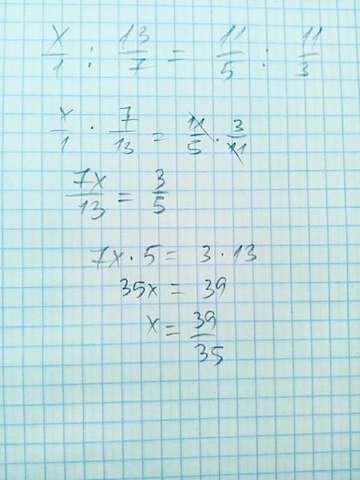 x/1 : 13/7 = 11/5 : 11/3
x/1 · 7/13 = 11/5 · 3/11
7x/13 = 3/5
7x · 5 = 3 · 13
35x = 39
x = 39/35